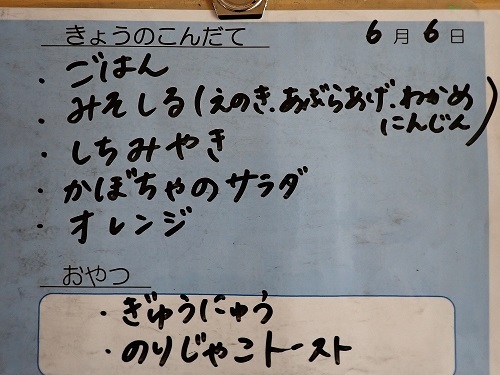 きょうのこんだて 6月6日
・ごはん
・みそしる(えのき.あぶらあげ.わかめ
にんじん)
・しちみやき
・かぼちゃのサラダ
・オレンジ
おやつ
・ぎゅうにゅう
・のりじゃこトースト